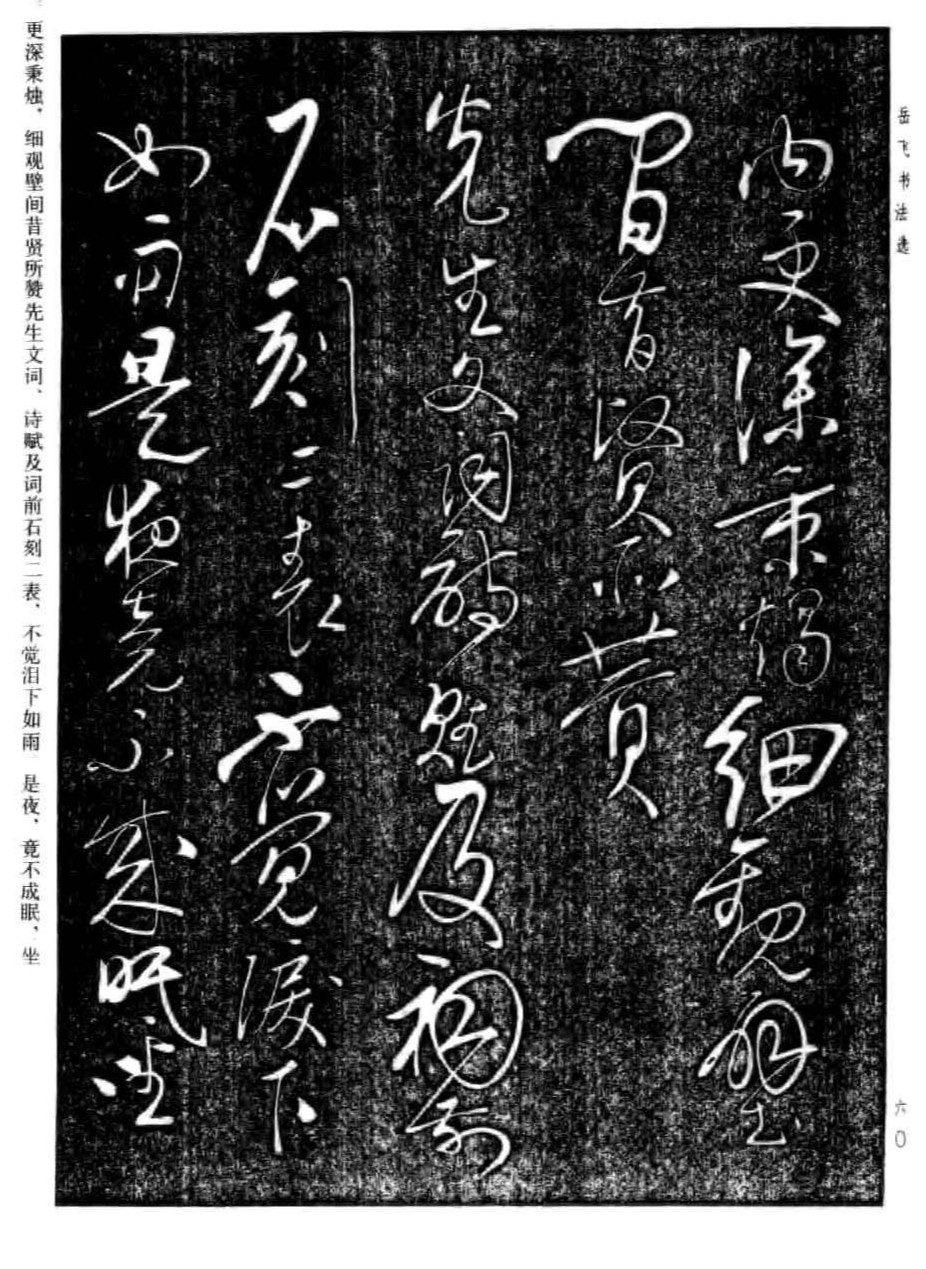 岳飞书法选
六〇
内更深秉燭細觀壁
間昔賢所贊
先生文詞詩賦及祠前
石刻二表不覺淚下
如雨是夜竟不成眠坐
更深秉烛，细观壁间昔贤所赞先生文词、诗赋及词前石刻二表、不觉泪下如雨 是夜、竟不成眠、坐